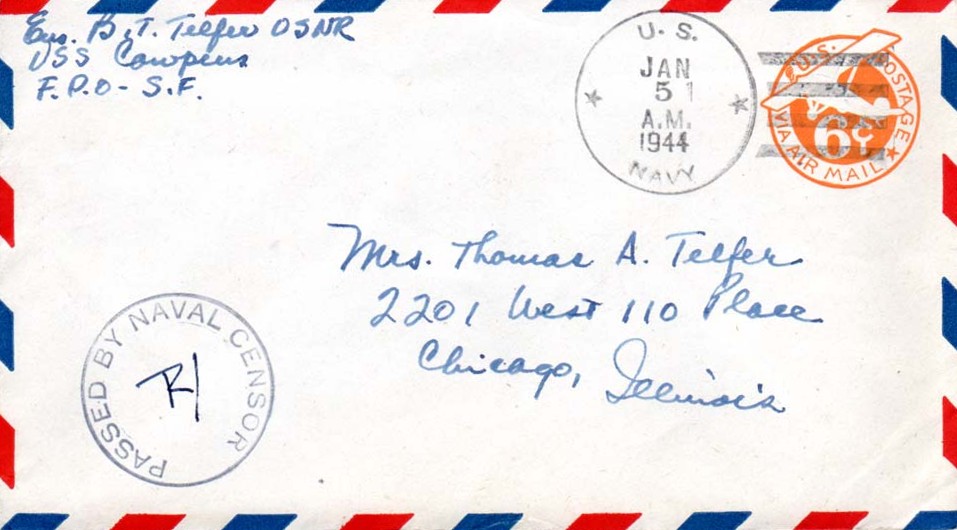 Ens. B.T. Telfer USNR
USS Cowpens
F.P.O - S.F.
U. S.
JAN
5 1
A.M.
1944
NAVY
U.S. POSTAGE
6¢
VIA AIR MAIL
Mrs. Thomas A. Telfer
2201 West 110 Place
Chicago, Illinois
PASSED BY NAVAL CENSOR